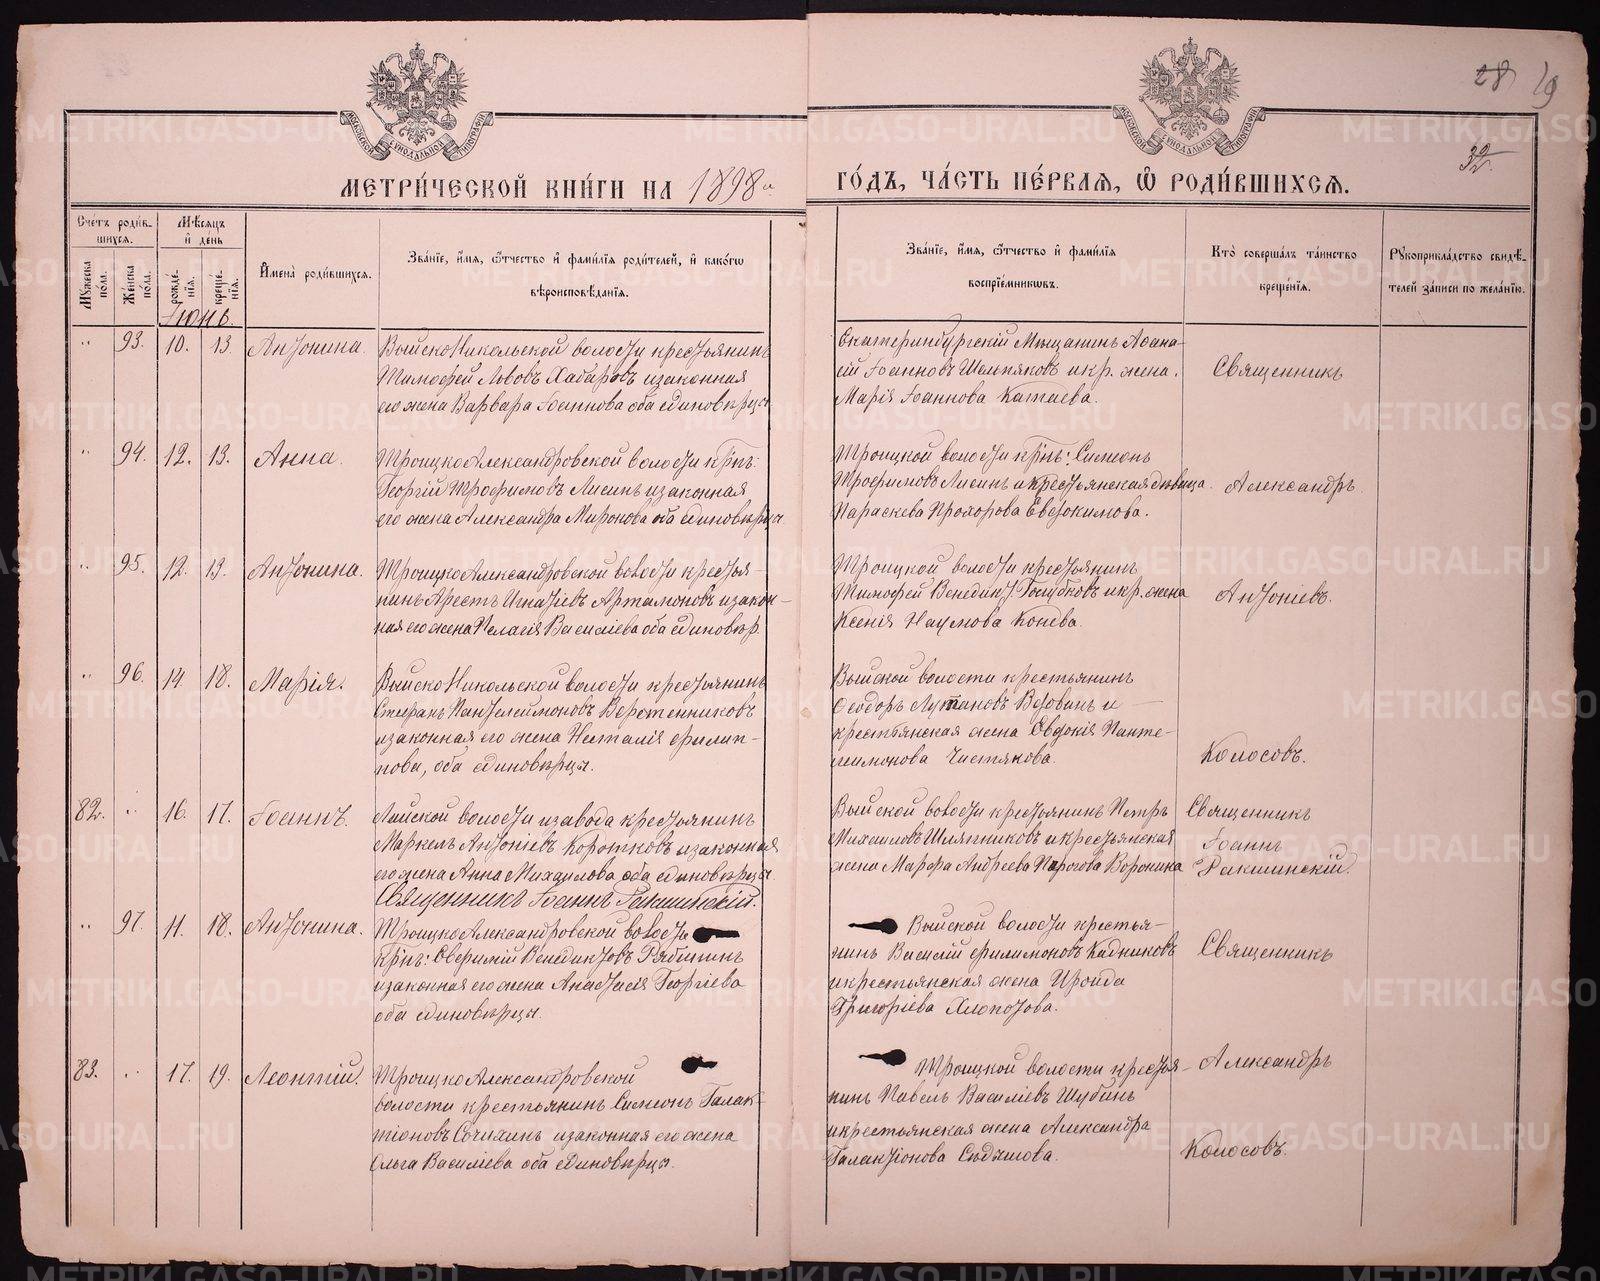 28 19
32.
МОСКОВСКОЙ СУНОДАЛЬНОЙ ТИПОГРАФІИ
МОСКОВСКОЙ СУНОДАЛЬНОЙ ТИПОГРАФІИ
МЕТРИ́ЧЕСКОЙ КНИ́ГИ НА 1898 й
ГО́ДЪ, ЧА́СТЬ ПЕ́РВАЯ, Ѡ҆ РОДИ́ВШИХСЯ.
Сче́тъ роди́в-
шихся.
Му́жеска по́ла.
Же́нска по́ла.
Мѣ́сяцъ
и҆ день
рожде́-нїя.
креще́-нїя.
И҆мена̀ роди́вшихся.
Зва́нїе, и҆́мя, ѻ҆́тчество и҆ фами́лїя роди́телей, и҆ како́гѡ
вѣроисповѣ́данїя.
Зва́нїе, и҆́мя, ѻ҆́тчество и҆ фами́лїя
воспрїе́мникѡвъ.
Кто̀ соверша́лъ та́инство
креще́нїя.
Рꙋкоприкла́дство свидѣ́-
телей за́писи по жела́нїю.
Іюнь.
" 93. 10. 13. Антонина.
Выйско Никольской волости крестьянинъ
Тимофей Львовъ Хабаровъ и законная
его жена Варвара Іоаннова оба единовѣрцы.
Екатеринбургскій Мѣщанинъ Афана-
сій Іоанновъ Шемпяковъ и кр. жена.
Марія Іоаннова Катаева.
Священникъ
" 94. 12. 13. Анна.
Троицко Александровской волости кр҃нъ:
Георгій Трофимовъ Лисинъ и законная
его жена Александра Миронова оба единовѣрцы
Троицкой волости кр҃нъ: Симеонъ
Трофимовъ Лисинъ и крестьянская дѣвица
Параскева Прохорова Евдокимова.
Александръ
" 95. 12. 13. Антонина.
Троицко Александровской волости крестья-
нинъ Арестъ Игнатіевъ Артамоновъ и закон-
ная его жена Пелагія Василіева оба единовѣр.
Троицкой волости крестьянинъ
Тимофей Венедикт. Голубковъ и кр. жена
Ксенія Наумова Конева.
Антоніевъ.
" 96. 14. 18. Марія.
Выйско Никольской волости крестьянинъ
Стефанъ Пантелеимоновъ Веретенниковъ
и законная его жена Наталія Филип-
пова, оба единовѣрцы.
Выйской волости крестьянинъ
Феодоръ Лупановъ Ветовинъ и
крестьянская жена Евдокія Панте-
леимонова Чистякова.
Колосовъ.
82. " 16. 17. Іоаннъ.
Лайской волости и завода крестьянинъ
Маркелъ Антоніевъ Коротковъ и законная
его жена Анна Михаилова оба единовѣрцы.
Священникъ Іоаннъ Ракшинскій.
Выйской волости крестьянинъ Петръ
Михаиловъ Шляпниковъ и крестьянская
жена Марфа Андреева Воронина
Священникъ
Іоаннъ
Ракшинскій.
" 97. 11. 18. Антонина.
Троицко Александровской волости
кр҃нъ: Евфимій Венедиктовъ Рябининъ
и законная его жена Анастасія Георгіева
оба единовѣрцы.
Выйской волости крестья-
нинъ Василій Филимоновъ Кадниковъ
и крестьянская жена Ироида
Григоріева Хлопотова.
Священникъ
83. " 17. 19. Леонтій.
Троицко Александровской
волости крестьянинъ Симеонъ Галак-
тіоновъ Сочихинъ и законная его жена
Ольга Василіева оба единовѣрцы.
Троицкой волости крестья-
нинъ Павелъ Василіевъ Шубинъ
и крестьянская жена Александра
Галактіонова Сѣдышова.
Александръ
Колосовъ.